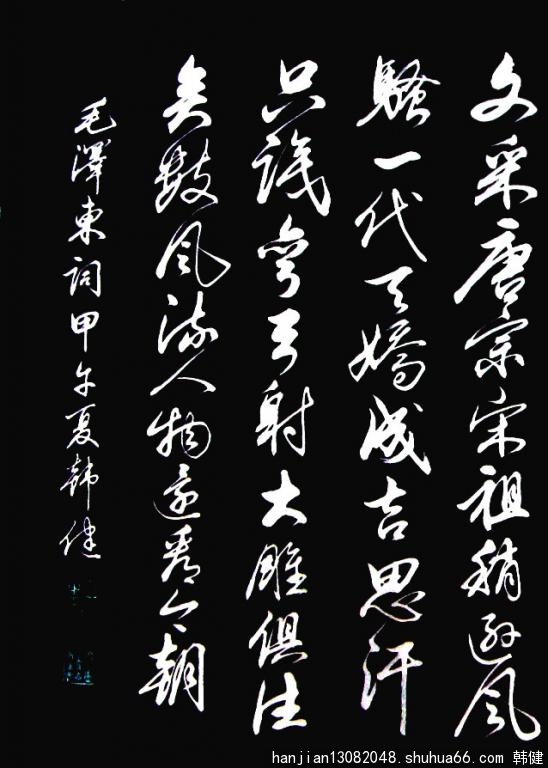 文采唐宗宋祖稍遜風
騷一代天嬌成吉思汗
只識彎弓射大雕俱往
矣數風流人物還看今朝
毛澤東詞甲午夏韓健
hanjian13082048.shuhua66.com 韩健